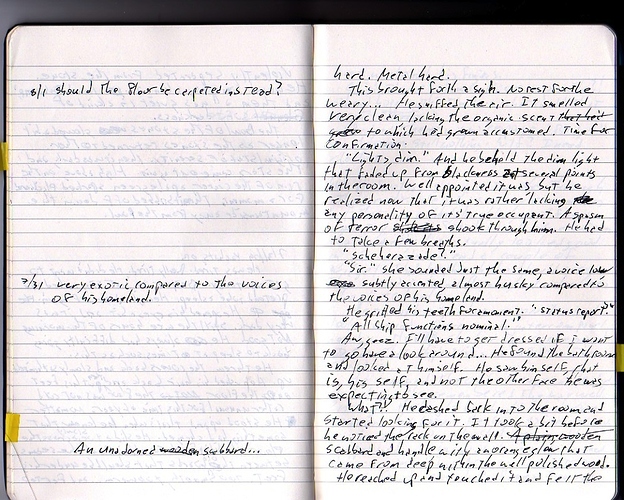 8/1 should the floor be carpeted instead?
7/31 very exotic compared to the voices
of his homeland.
An unadorned wooden scabbard...
hard. Metal hard.
This brought forth a sigh. No rest for the
weary... He sniffed the air. It smelled
very clean lacking the organic scent that he'd
grew to which he'd grown accustomed. Time for
confirmation.
"Lights, dim." And he beheld the dim light
that faded up from blackness at several points
in the room. Well appointed it was but he
realized now that it was rather lacking
any personality of its' true occupant. A spasm
of terror shook through him. He had
to take a few breaths.
"Scheherazade?"
"Sir." she sounded just the same, a voice low
subtly accented, almost husky compared to
the voices of his homeland.
He gritted his teeth for a moment. "Status report."
"All ship functions nominal."
Aw, geez. I'll have to get dressed if I want
to go have a look around... He found the bathroom
and looked at himself. He saw himself, that
is, his self, and not the other face he was
expecting to see.
What?! He dashed back into the room and
started looking for it. It took a bit before
he noticed the rack on the wall. A plain wooden
scabbard and handle with an orange glow that
came from deep within the well polished wood.
He reached up and touched it and felt the